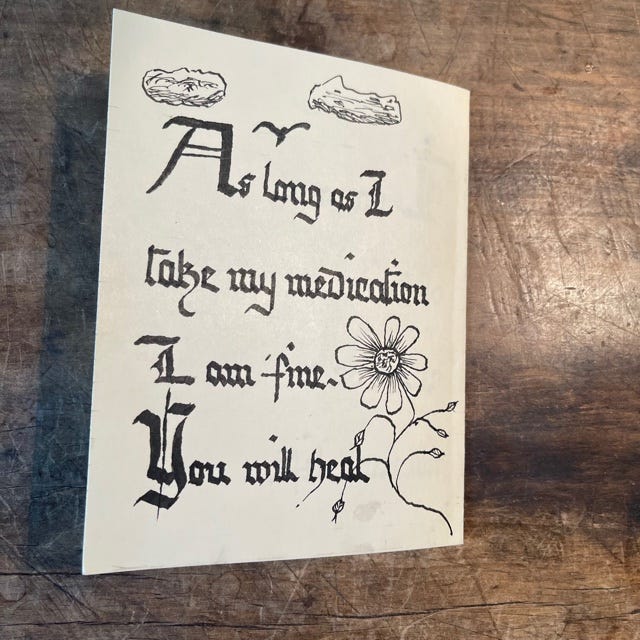 As long as I
take my medication
I am fine.
You will heal